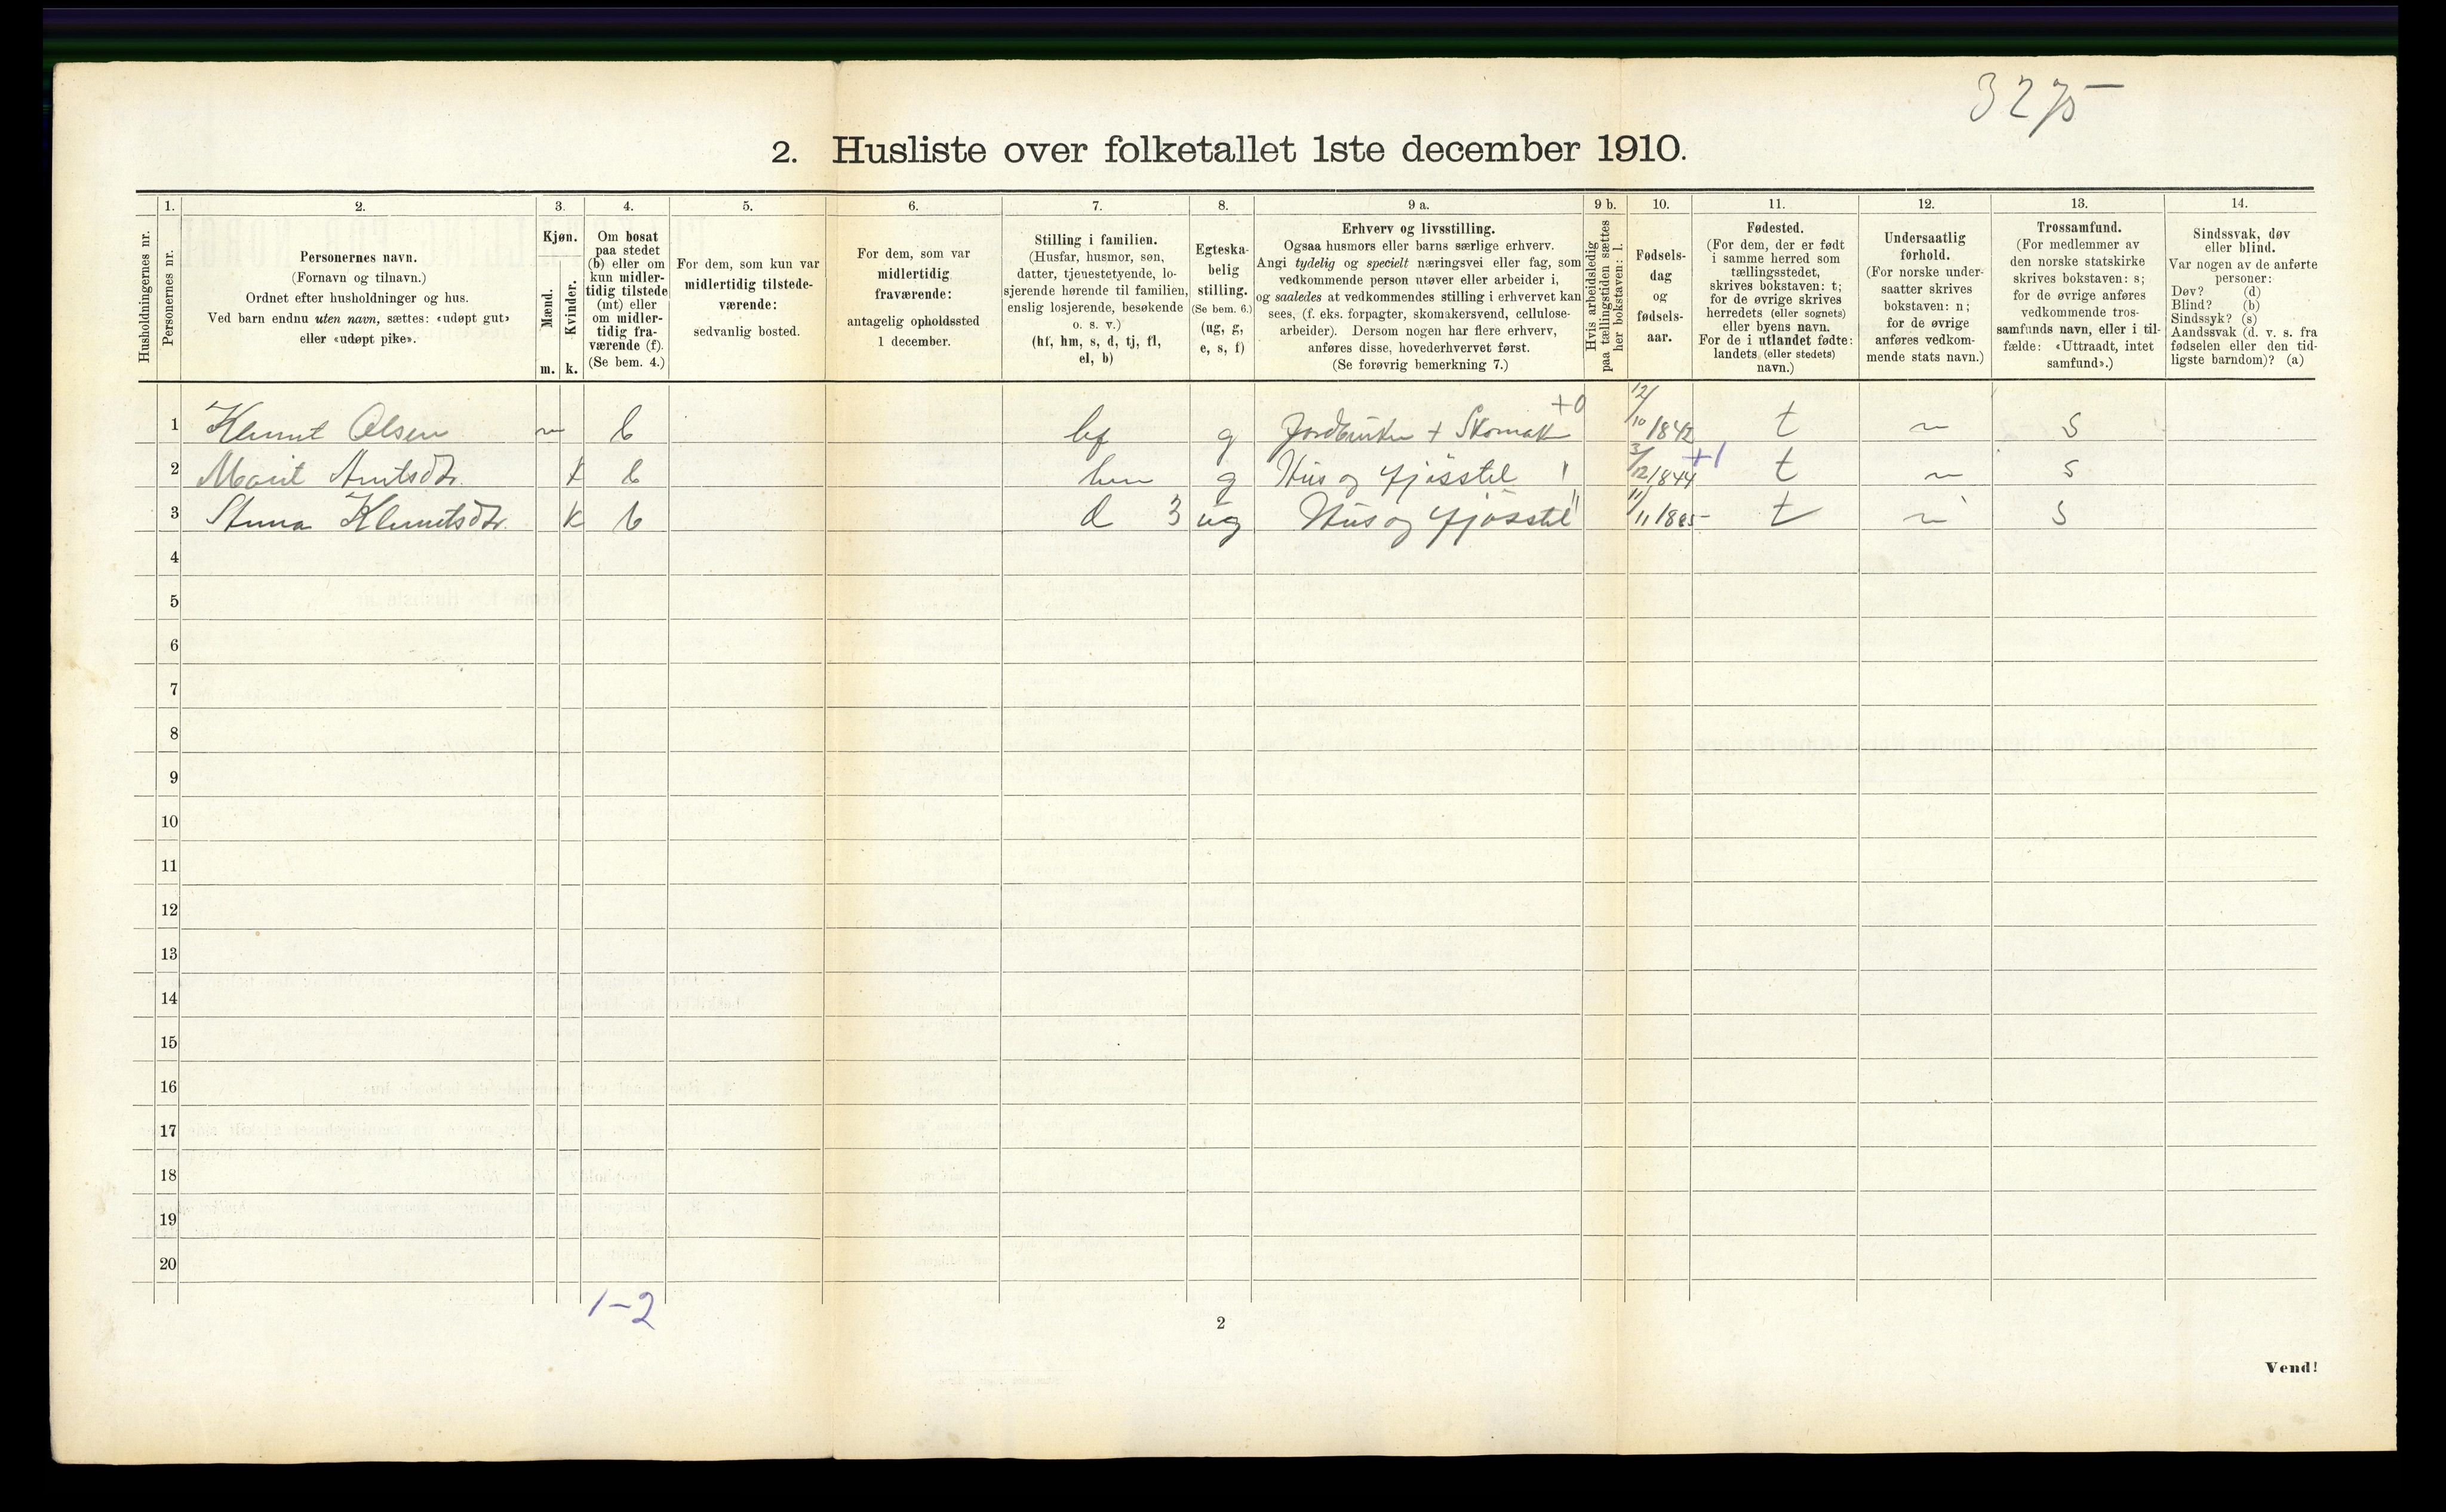 3275
2. Husliste over folketallet 1ste december 1910.
Husholdningernes nr.
1.
Personernes nr.
2.
Personernes navn.
(Fornavn og tilnavn.)
Ordnet efter husholdninger og hus.
Ved barn endnu uten navn, sættes: «udøpt gut»
eller «udøpt pike».
3.
Kjøn.
Mænd.
Kvinder.
m. k.
4.
Om bosat
paa stedet
(b) eller om
kun midler-
tidig tilstede
(mt) eller
om midler-
tidig fra-
værende (f).
(Se bem. 4.)
5.
For dem, som kun var
midlertidig tilstede-
værende:
sedvanlig bosted.
6.
For dem, som var
midlertidig
fraværende:
antagelig opholdssted
1 december.
7.
Stilling i familien.
(Husfar, husmor, søn,
datter, tjenestetyende, lo-
sjerende hørende til familien,
enslig losjerende, besøkende
o. s. v.)
(hf, hm, s, d, tj, fl,
el, b)
8.
Egteska-
belig
stilling.
(Se bem. 6.)
(ug, g,
e, s, f)
9 a.
Erhverv og livsstilling.
Ogsaa husmors eller barns særlige erhverv.
Angi tydelig og specielt næringsvei eller fag, som
vedkommende person utøver eller arbeider i,
og saaledes at vedkommendes stilling i erhvervet kan
sees, (f. eks. forpagter, skomakersvend, cellulose-
arbeider). Dersom nogen har flere erhverv,
anføres disse, hovederhvervet først.
(Se forøvrig bemerkning 7.)
9 b.
Hvis arbeidsledig
paa tællingstiden sættes
her bokstaven: l.
10.
Fødsels-
dag
og
fødsels-
aar.
11.
Fødested.
(For dem, der er født
i samme herred som
tællingsstedet,
skrives bokstaven: t;
for de øvrige skrives
herredets (eller sognets)
eller byens navn.
For de i utlandet fødte:
landets (eller stedets)
navn.)
12.
Undersaatlig
forhold.
(For norske under-
saatter skrives
bokstaven: n;
for de øvrige
anføres vedkom-
mende stats navn.)
13.
Trossamfund.
(For medlemmer av
den norske statskirke
skrives bokstaven: s;
for de øvrige anføres
vedkommende tros-
samfunds navn, eller i til-
fælde: «Uttraadt, intet
samfund».)
14.
Sindssvak, døv
eller blind.
Var nogen av de anførte
personer:
Døv? (d)
Blind? (b)
Sindssyk? (s)
Aandssvak (d. v. s. fra
fødselen eller den tid-
ligste barndom)? (a)
+0
1 Klemit Olsen m b hf g Jordbruker + Skomak 12/10 1842 t n s
2 Marit k b hm g Hus og fjøsstel 3/12 1844 +1 t n s
3 k b d 3 ug Hus og fjøsstel 11/11 1885 t n s
4
5
6
7
8
9
10
11
12
13
14
15
16
17
18
19
20
1-2
2
Vend!